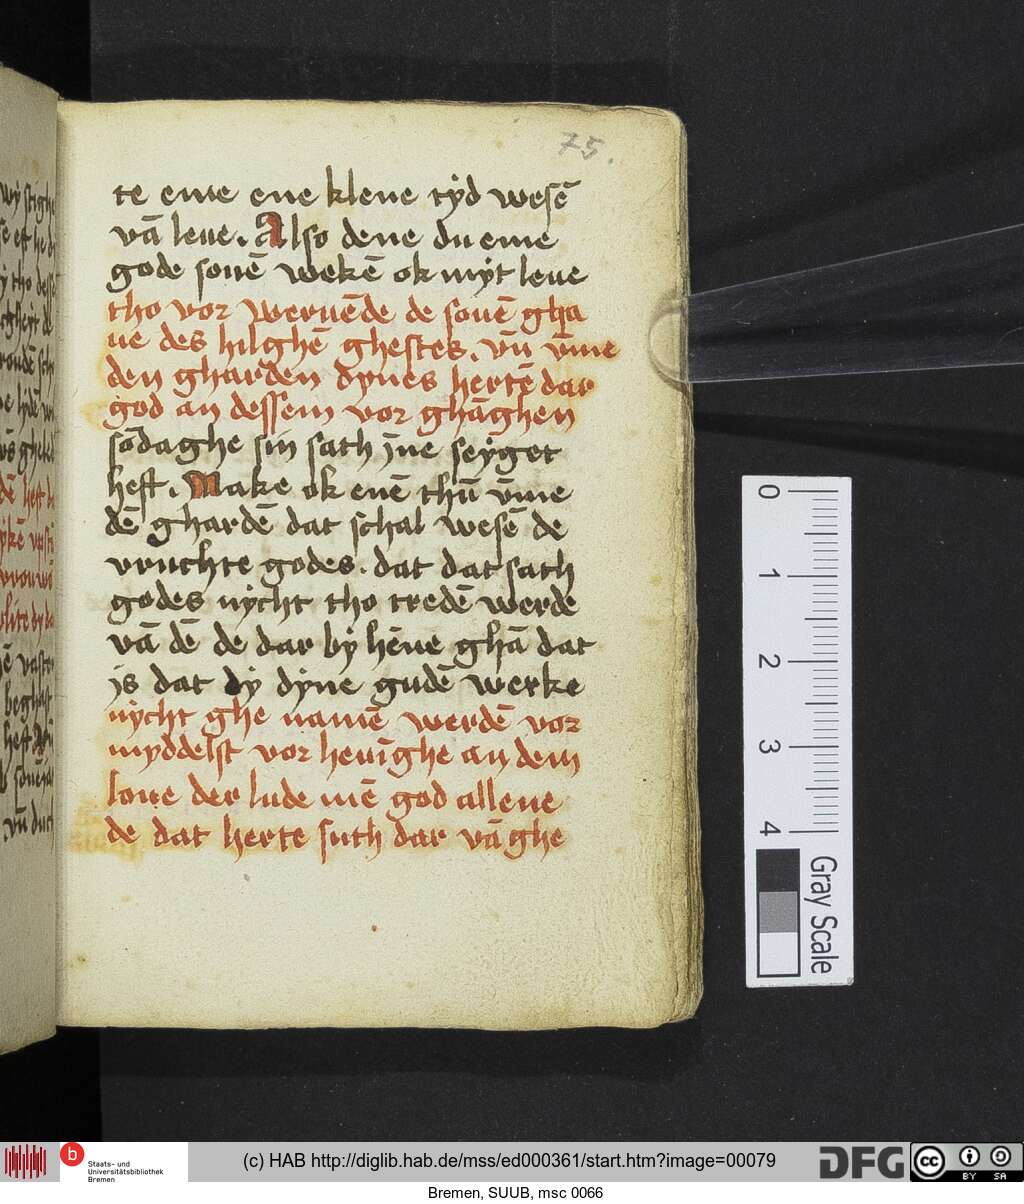 75.
te eme ene klene tyd wesē
vā leue. Also dene du eme
gode souē wekē ok myt leue
tho vor weruēde de souē gha
ue des hilghē ghestes. vn̄ v̄me
den gharden dynes hertē dar
god an dessem vor ghāghen
sōdaghe sin sath jne seyget
heft. Make ok enē thun̄ v̄me
dē ghardē dat schal wesē de
vruchte godes. dat dat sath
godes nycht tho tredē werde
vā dē de dar by hēne ghā dat
is dat dy dyne gudē werke
nycht ghe namē werdē vor
myddelst vor heuīghe an dem
loue der lude mē god allene
de dat herte suth dar vā ghe
0
1
2
3
4
Gray Scale
b
Staats- und
Universitätsbibliothek
Bremen
(c) HAB http://diglib.hab.de/mss/ed000361/start.htm?image=00079
DFG
cc
BY SA
Bremen, SUUB, msc 0066